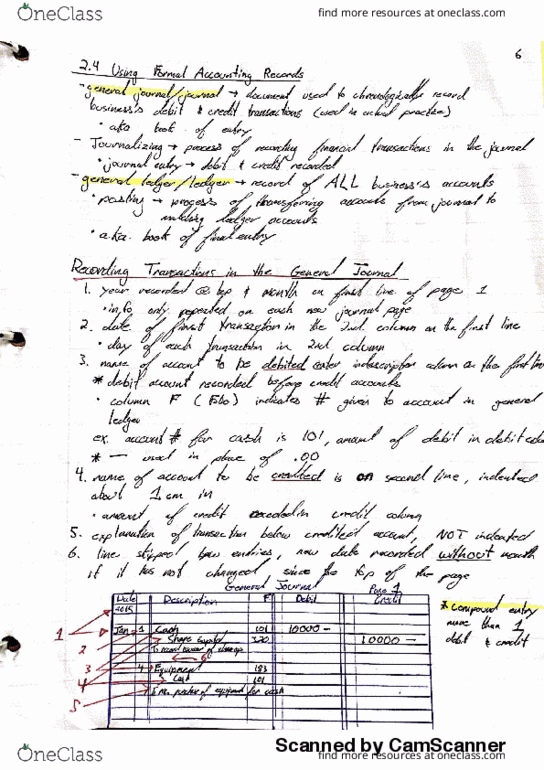 OneClass
find more resources at oneclass.com
6
2.4 Using Formal Accounting Records
- general journal/journal → document used to chronologically record
business's debit & credit transactions (used in actual practice)
• aka book of entry
- Journalizing → process of recording financial transactions in the journal
• journal entry → debit & credit recorded
- general ledger/ledger → record of ALL business's accounts
• posting → process of transferring accounts from journal to
ledger accounts
• a.k.a. book of final entry
Recording Transactions in the General Journal
1. year recorded @ top & month on first line of page 1
• info only repeated on each new journal page
2. date of first transaction in the 2nd column on the first line
• day of each transaction in 2nd column
3. name of account to be debited enter column on the first
* debit account recorded before credit accounts
• column F (Folio) indicates # given to account in general
ledger
ex. account # for cash is 101, amount of debit in debit
* — used in place of .00
4. name of account to be credited is on second line, indented
about 1 cm in
• amount of credit recorded in credit column
5. explanation of transaction below credited account, NOT indented
6. line skipped btw entries, new date recorded without month
if it has not changed since the top of the page
General Journal
Page 1
Date Description F Debit Credit
2015
1 Jan 1 Cash 101 10000 —
2 Share capital 320 10000 —
3 4 Equipment 183
4 Cash 101
5 purchase of equipment for cash
* compound entry
more than 1
debit & credit
Scanned by CamScanner
OneClass
find more resources at oneclass.com